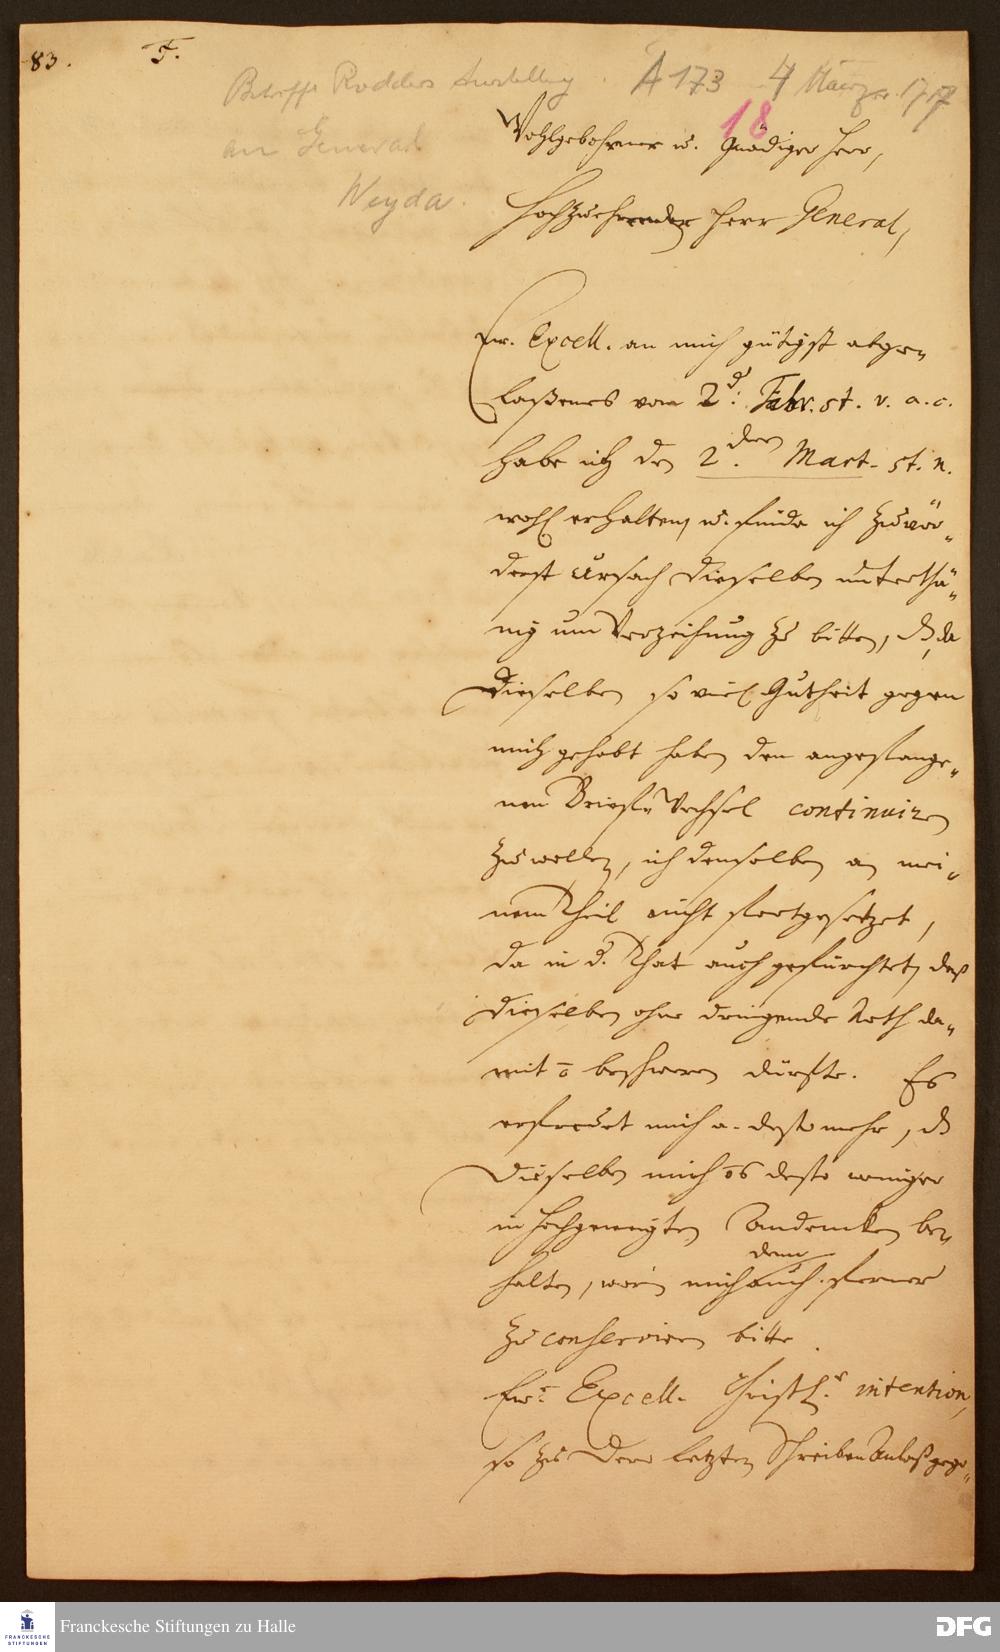 83. F.
Betreffs Rodders Anstellung. A 173 4 Maerz 1717
18
an General
Weyda.
Wohlgebohrner u. Gnädiger Herr,
Hochzuehrender Herr General,
Ew. Excell. an mich gütigst abge-
laßenes vom 2d: Febr. st. v. a. c.
habe ich den 2.den Mart. st. n.
wohl erhalten, u. finde ich zuvör-
derst Ursach dieselben unterthä-
nig um Verzeihung zu bitten, d, da
dieselben so viel Gutheit gegen
mich gehabt haben den angefange-
nen Brief-Wechsel continuiren
zu wollen, ich denselben an mei-
nem Theil nicht fortgesetzet,
da in d. That auch gefürchtet, daß
dieselben ohne dringende Noth da-
mit beschweren dürfte. Es
erfreuet mich a. desto mehr, d
dieselben mich desto weniger
in hochgeneigten Andencken be-
halten, worin mich denn auch ferner
zu conserviren bitte.
Ewr. Excell. Christl.e intention,
so zu dero letzten Schreiben Anlaß gege-
FRANCKESCHE STIFTUNGEN
Franckesche Stiftungen zu Halle
DFG